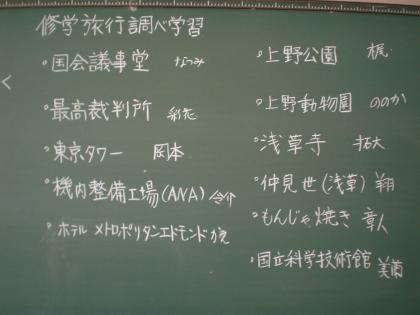 修学旅行調べ学習
・国会議事堂 なつみ
・最高裁判所
・東京タワー 岡本
・機内整備工場(ANA)
・ホテル メトロポリタンエドモンド
・上野公園 梶
・上野動物園 ののか
・浅草寺 拓大
・仲見世(浅草) 翔
・もんじゃ焼き 章人
・国立科学技術館 美蘭